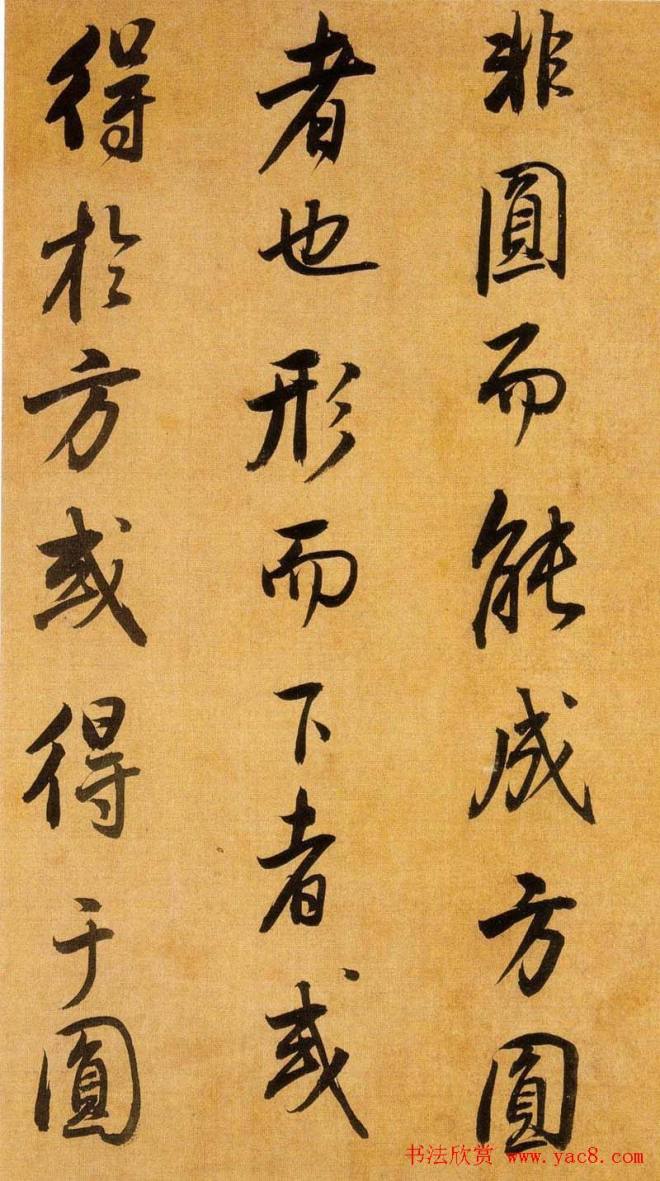 非圓而能成方圓
者也形而下者或
得於方或得于圓
书法欣赏 www.yac8.com